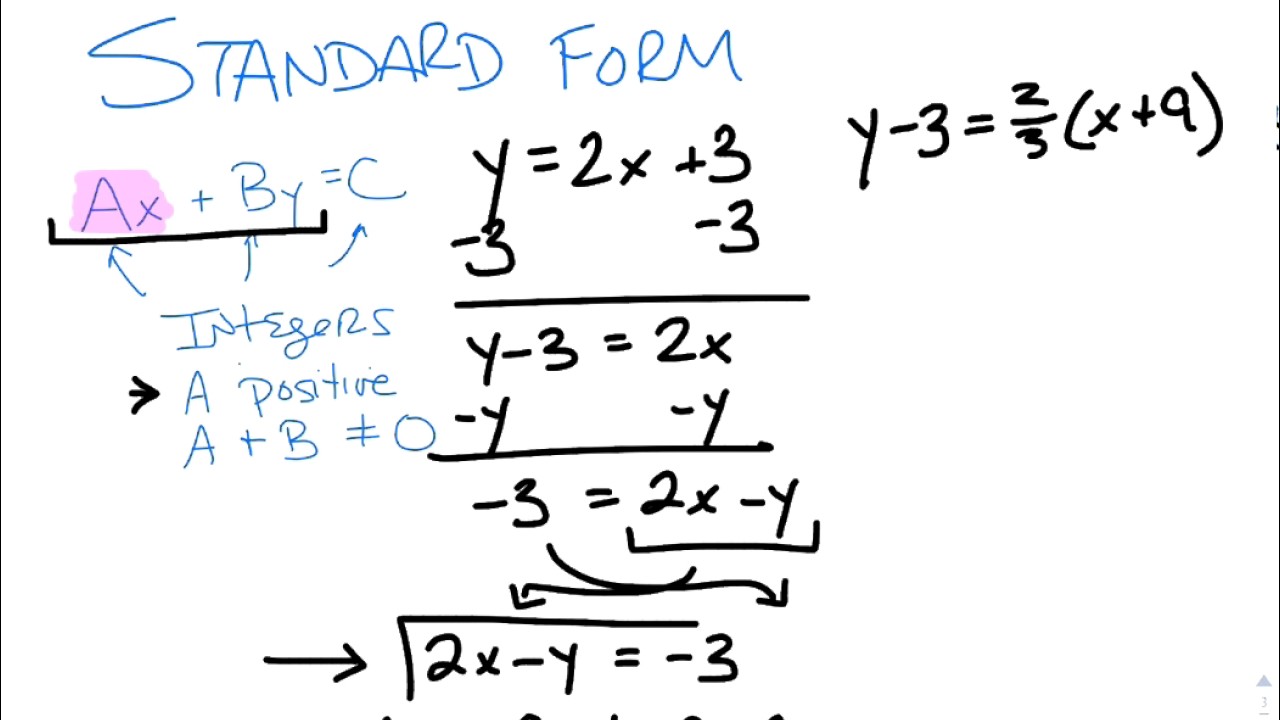 STANDARD FORM
Ax + By = C
INtEgERS
A positive
A + B ≠ 0
y = 2x + 3
-3 -3
y - 3 = 2x
-y -y
-3 = 2x - y
2x - y = -3
y - 3 = 2/3 (x + 9)
3